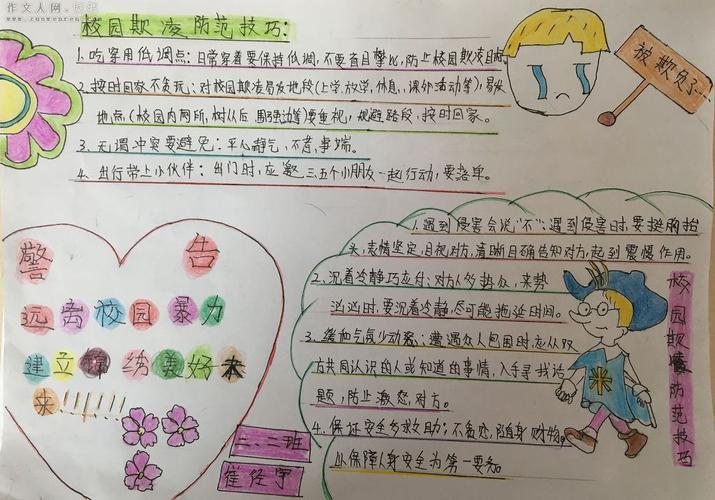 作文人网
校园欺凌防范技巧：
1、吃穿用低调点：日常穿着要保持低调，不要盲目攀比，防止校园欺凌目标。
2、按时回家不贪玩：对校园欺凌易发地段(上学、放学、休息、课外活动等)；易发
地点(校园内厕所，树丛后 围强边等)要重视，规避路段，按时回家。
3、无谓冲突要避免：平心静气，不惹事端。
4、出行带上小伙伴：出门时，应邀三、五个小朋友一起行动，要落单。
被欺负了
警 告
远离校园暴力
建立锦绣美好未
来!!!!!!
二、二班
1、遇到侵害会说"不"：遇到侵害时，要挺胸抬
头，表情坚定，目视对方，清晰目确告知对方，起到震慑作用。
2、沉着冷静巧应付：对方人多势众，来势
汹汹时，要沉着冷静，尽可能拖延时间。
3、缓和气氛少动怒：遭遇众人包围时，应从双
方共同认识的人或知道的事情，入手寻找话
题，防止激怒对方。
4、保证安全多求助：不贪恋随身财物。
以保障人身安全为第一要务。
校园欺凌防范技巧